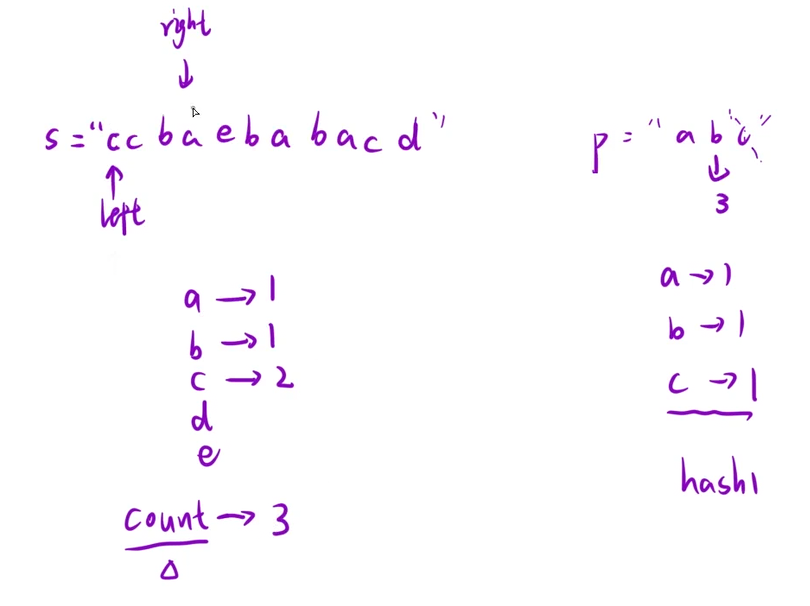 right
↓
s = "ccbaebabacd"
p = "abc"
↑
left
↓
3
a → 1
b → 1
c → 2
d
e
count → 3
Δ
a → 1
b → 1
c → 1
hash1